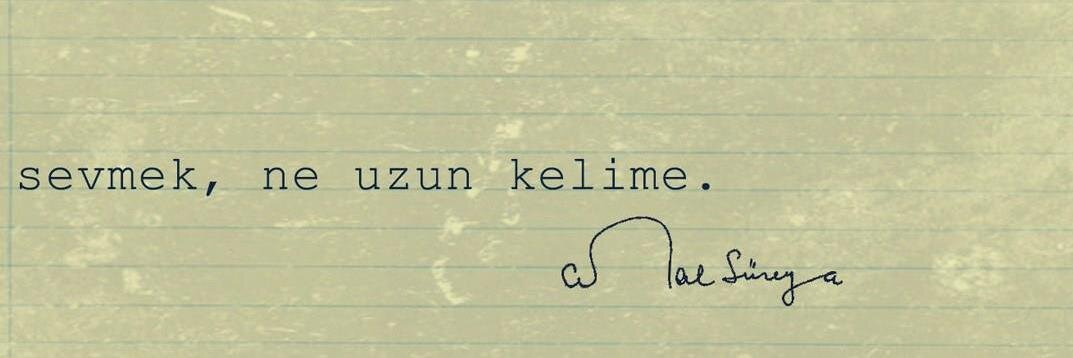 sevmek, ne uzun kelime.
Cemal Süreya